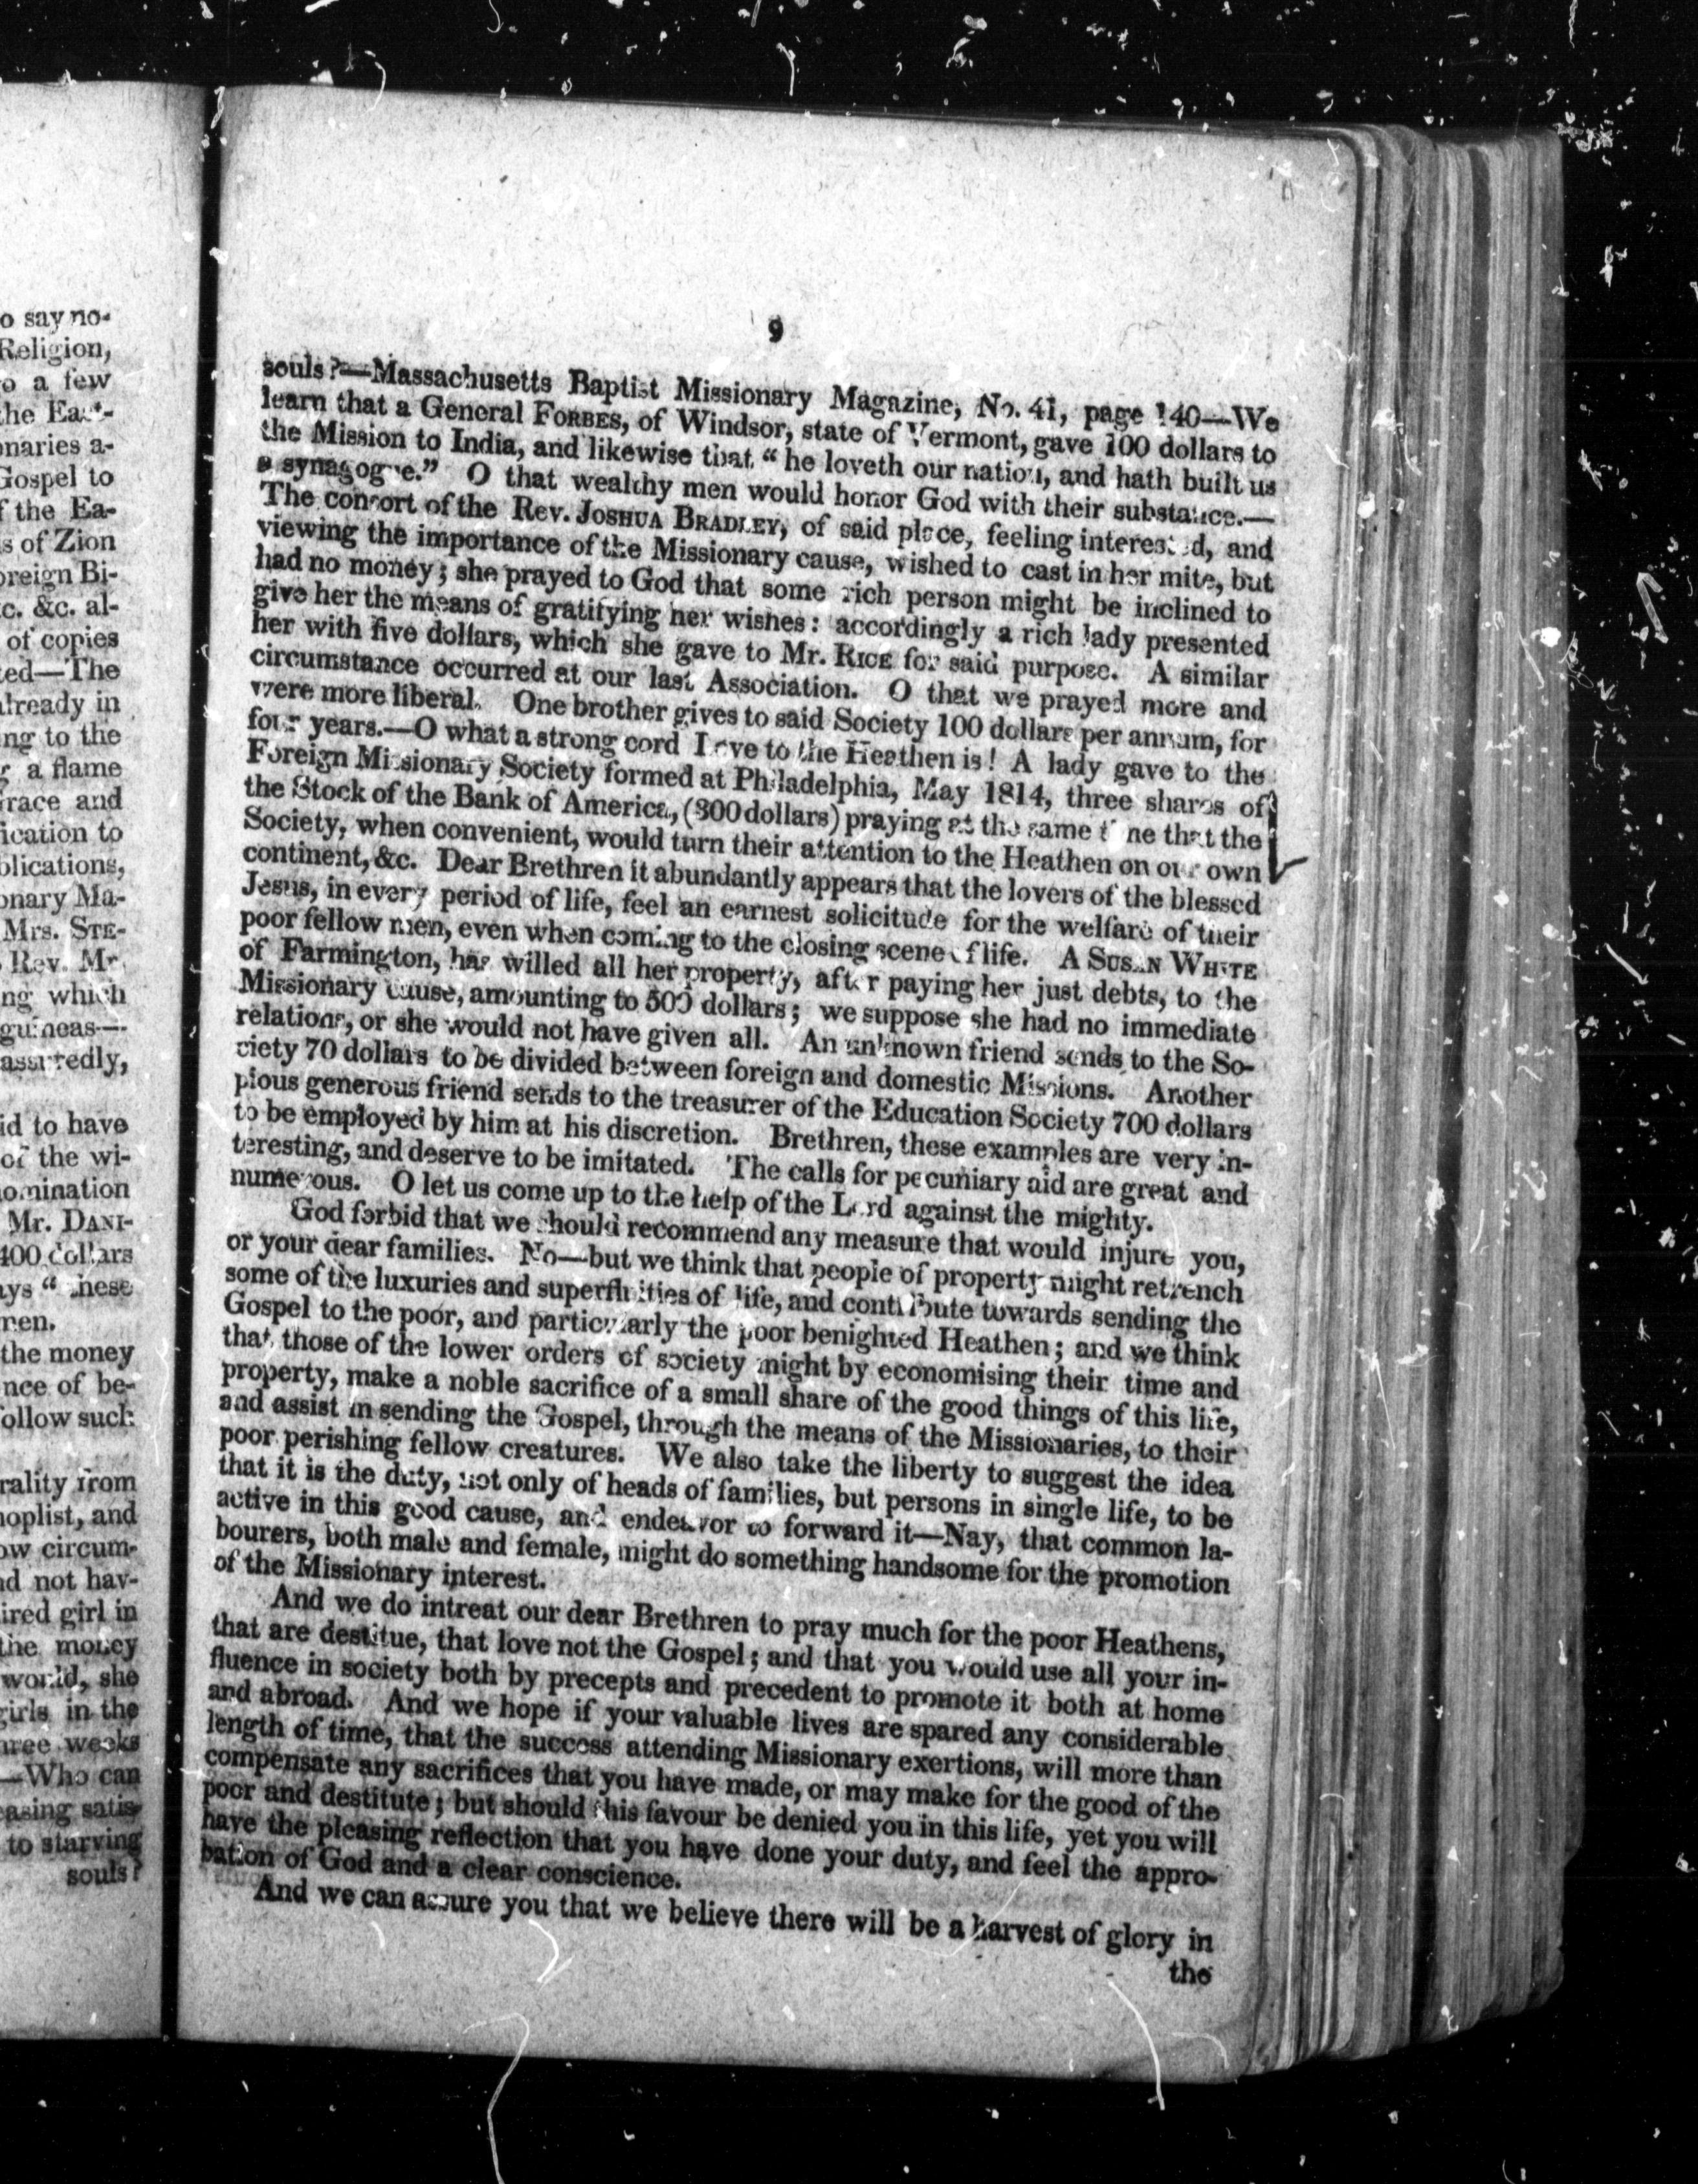 o say no-
Religion,
o a few
the East-
onaries a-
Gospel to
f the Ea-
s of Zion
oreign Bi-
c. &c. al-
of copies
ted—The
already in
ng to the
g a flame
race and
ication to
blications,
onary Ma-
Mrs. STE-
Rev. Mr.
ng which
guineas—
assuredly,
id to have
of the wi-
omination
Mr. DANI-
400 dollars
ays " these
men.
the money
nce of be-
follow such
rality from
noplist, and
ow circum-
nd not hav-
ired girl in
the money
world, she
girls in the
hree weeks
—Who can
easing satis-
to starving
souls?
9
souls?—Massachusetts Baptist Missionary Magazine, No. 41, page 140—We
learn that a General FORBES, of Windsor, state of Vermont, gave 100 dollars to
the Mission to India, and likewise that " he loveth our nation, and hath built us
a synagogue." O that wealthy men would honor God with their substance.—
The consort of the Rev. JOSHUA BRADLEY, of said place, feeling interested, and
viewing the importance of the Missionary cause, wished to cast in her mite, but
had no money; she prayed to God that some rich person might be inclined to
give her the means of gratifying her wishes: accordingly a rich lady presented
her with five dollars, which she gave to Mr. RICE for said purpose. A similar
circumstance occurred at our last Association. O that we prayed more and
were more liberal. One brother gives to said Society 100 dollars per annum, for
four years.—O what a strong cord Love to the Heathen is! A lady gave to the
Foreign Missionary Society formed at Philadelphia, May 1814, three shares of
the Stock of the Bank of America, (300 dollars) praying at the same time that the
Society, when convenient, would turn their attention to the Heathen on our own
continent, &c. Dear Brethren it abundantly appears that the lovers of the blessed
Jesus, in every period of life, feel an earnest solicitude for the welfare of their
poor fellow men, even when coming to the closing scene of life. A SUSAN WHITE
of Farmington, has willed all her property, after paying her just debts, to the
Missionary cause, amounting to 500 dollars; we suppose she had no immediate
relations, or she would not have given all. An unknown friend sends to the So-
ciety 70 dollars to be divided between foreign and domestic Missions. Another
pious generous friend sends to the treasurer of the Education Society 700 dollars
to be employed by him at his discretion. Brethren, these examples are very in-
teresting, and deserve to be imitated. The calls for pecuniary aid are great and
numerous. O let us come up to the help of the Lord against the mighty.
God forbid that we should recommend any measure that would injure you,
or your dear families. No—but we think that people of property might retrench
some of the luxuries and superfluities of life, and contribute towards sending the
Gospel to the poor, and particularly the poor benighted Heathen; and we think
that those of the lower orders of society might by economising their time and
property, make a noble sacrifice of a small share of the good things of this life,
and assist in sending the Gospel, through the means of the Missionaries, to their
poor perishing fellow creatures. We also take the liberty to suggest the idea
that it is the duty, not only of heads of families, but persons in single life, to be
active in this good cause, and endeavor to forward it—Nay, that common la-
bourers, both male and female, might do something handsome for the promotion
of the Missionary interest.
And we do intreat our dear Brethren to pray much for the poor Heathens,
that are destitue, that love not the Gospel; and that you would use all your in-
fluence in society both by precepts and precedent to promote it both at home
and abroad. And we hope if your valuable lives are spared any considerable
length of time, that the success attending Missionary exertions, will more than
compensate any sacrifices that you have made, or may make for the good of the
poor and destitute; but should this favour be denied you in this life, yet you will
have the pleasing reflection that you have done your duty, and feel the appro-
bation of God and a clear conscience.
And we can assure you that we believe there will be a harvest of glory in
the